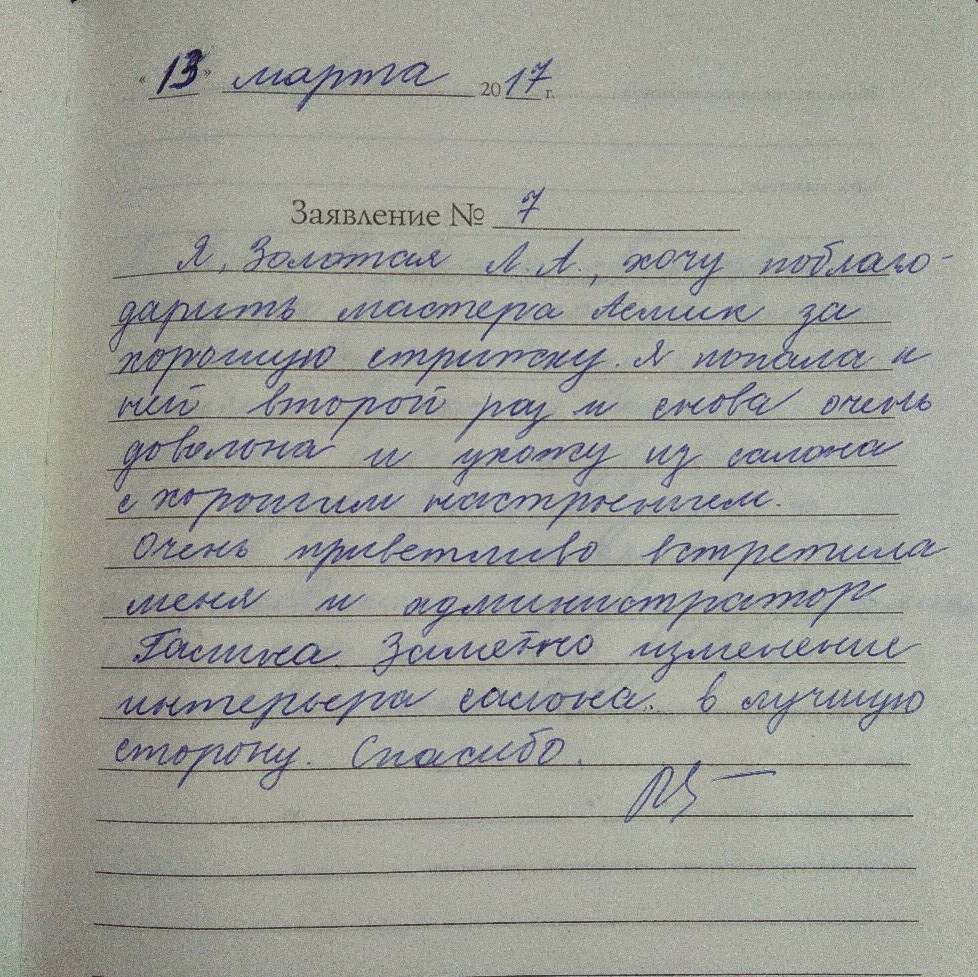 «13» марта 2017 г.
Заявление № 7
Я, Золотая Л.А., хочу поблаго-
дарить мастера Асмик за
хорошую стрижку. Я попала к
ней второй раз и снова очень
довольна и ухожу из салона
с хорошим настроением.
Очень приветливо встретила
меня и администратор
Галина. Заметно изменение
интерьера салона в лучшую
сторону. Спасибо.